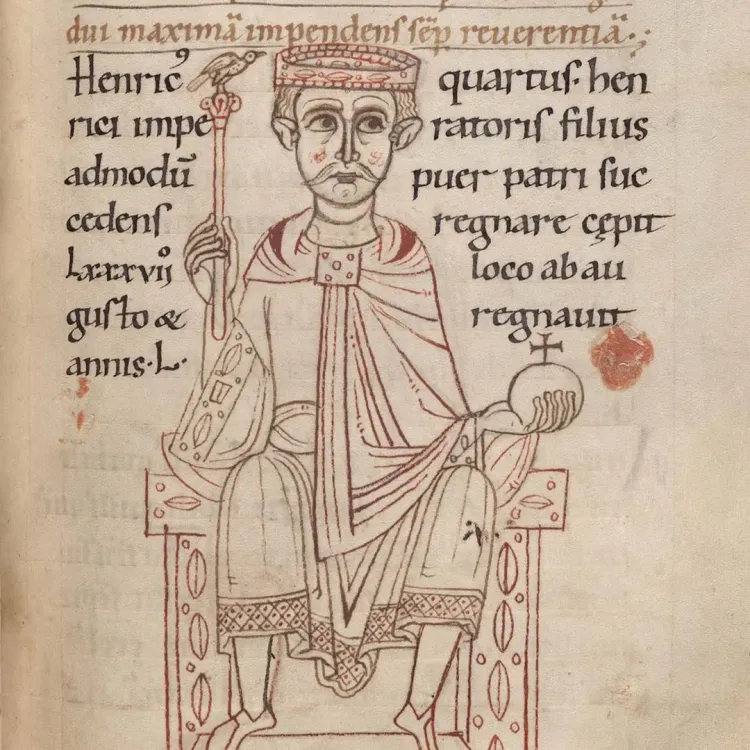 dui maximā impendens sēp reuerentiā.
Henric⁹ quartus. hen
rici impe ratoris filius
admodū puer patri suc
cedens regnare cępit
lxxxvii⁰ loco ab au
gusto & regnauit
annis. L.